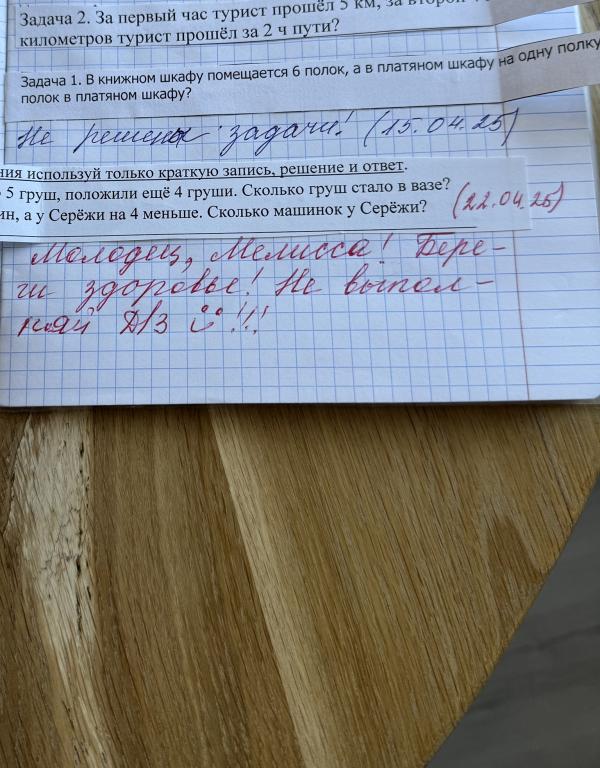 Задача 2. За первый час турист прошёл 5 км, за второй
километров турист прошёл за 2 ч пути?
Задача 1. В книжном шкафу помещается 6 полок, а в платяном шкафу на одну полку
полок в платяном шкафу?
Не решены задачи! (15.04.25)
ния используй только краткую запись, решение и ответ.
5 груш, положили ещё 4 груши. Сколько груш стало в вазе?
ин, а у Серёжи на 4 меньше. Сколько машинок у Серёжи? (22.04.25)
Молодец, Мелисса! Бере-
ги здоровье! Не выпол-
няй Д/З !!!